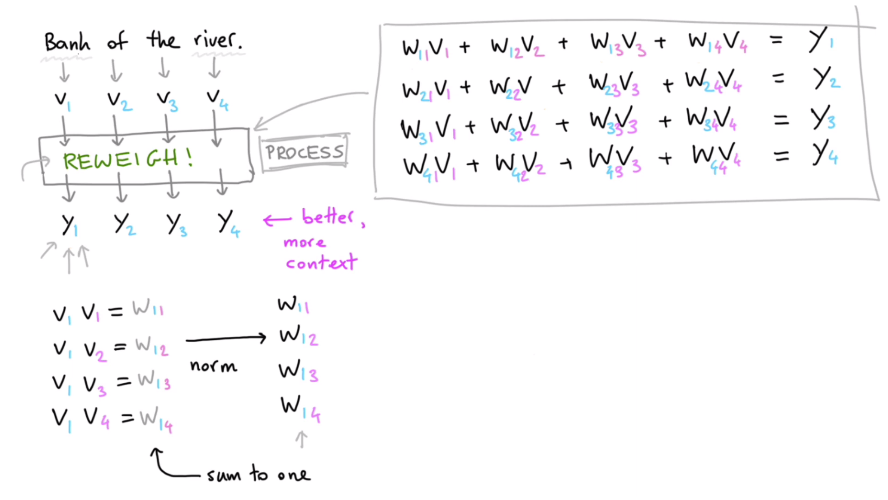 Bank of the river.
v1 v2 v3 v4
REWEIGH!
PROCESS
y1 y2 y3 y4
← better,
more
context
W11V1 + W12V2 + W13V3 + W14V4 = Y1
W21V1 + W22V + W23V3 + W24V4 = Y2
W31V1 + W32V2 + W33V3 + W34V4 = Y3
W41V1 + W42V2 + W43V3 + W44V4 = Y4
V1 V1 = W11
V1 V2 = W12
V1 V3 = W13
V1 V4 = W14
norm
W11
W12
W13
W14
sum to one